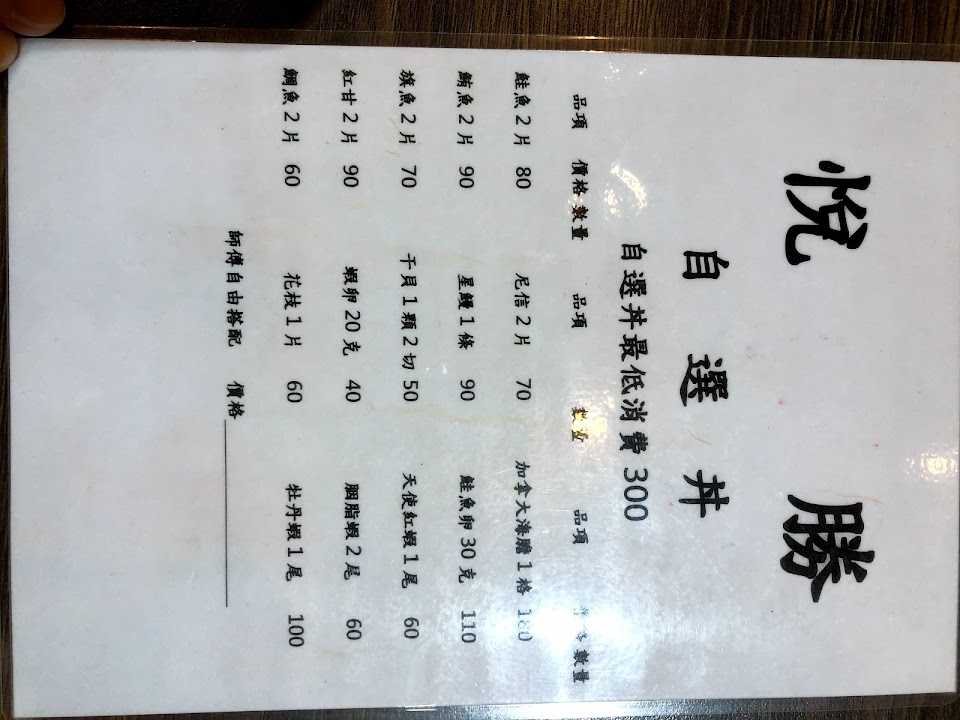 悅 勝
自 選 丼
自選丼最低消費 300
品項 價格 數量 品項 數量 品項 數量
鮭魚2片 80 尼信2片 70 加拿大海膽1格 180
鮪魚2片 90 星鰻1條 90 鮭魚卵30克 110
旗魚2片 70 干貝1顆2切 50 天使紅蝦1尾 60
紅甘2片 90 蝦卵20克 40 胭脂蝦2尾 60
鯛魚2片 60 花枝1片 60 牡丹蝦1尾 100
師傅自由搭配 價格